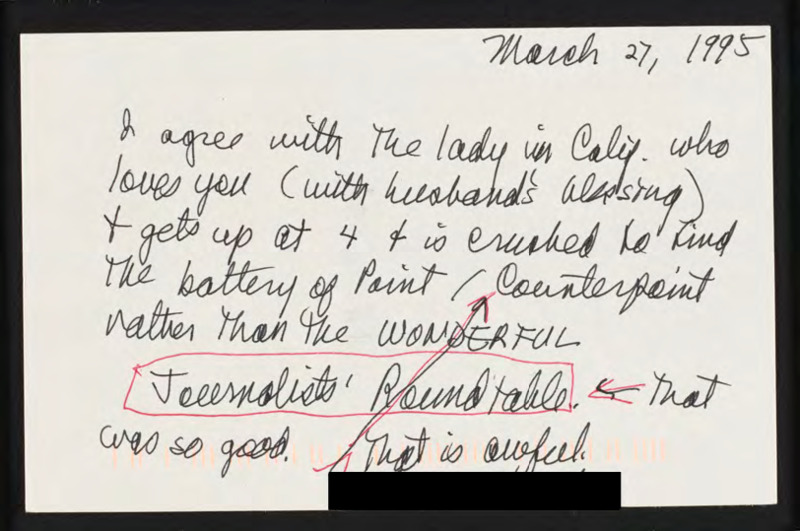 March 27, 1995
I agree with the lady in Calif. who
loves you (with husband's blessing)
+ gets up at 4 + is crushed to find
the battery of Point / Counterpoint
rather than the WONDERFUL
Journalists' Roundtable. ← That
was so good. That is awful.